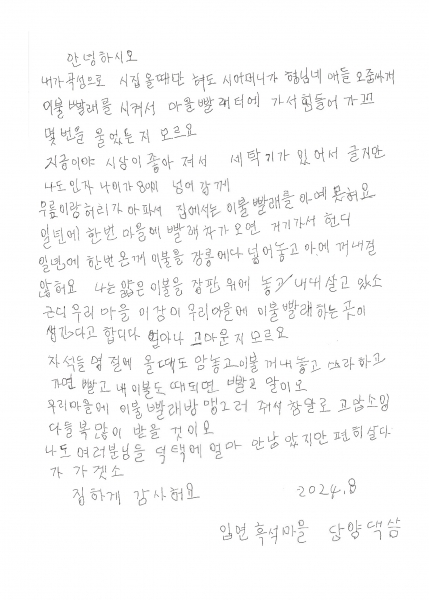 안녕하시오
내가 곡성으로 시집 올때만 혀도 시어머니가 형님네 애들 오줌싸게
이불 빨래를 시켜서 마을 빨래터에 가서 힘들어 가꼬
몇번을 울었는지 모르요
지금이야 시상이 좋아 저서 세탁기가 있어서 글지만
나도 인자 나이가 80이 넘어 강께
무릎이랑 허리가 아파서 집에서는 이불 빨래를 아예 못혀요
일년에 한번 마을에 빨래차가 오면 거기가서 헌디
일년에 한번 온께 이불을 장롱에다 넣어놓고 아예 꺼내질
않혀요 나는 얇은 이불을 장판 위에 놓고 내내 살고 있소
근디 우리 마을 이장이 우리마을에 이불 빨래하는 곳이
생긴다고 합디다 얼마나 고마운지 모르요
자석들 명절에 올때도 맘놓고 이불 꺼내놓고 쓰라하고
가면 빨고 내 이불도 때되면 빨고 말이오
우리마을에 이불 빨래방 맹그러 주셔 참말로 고맙소잉
다들 복 많이 받을 것이오
나도 여러분님들 덕택에 얼마 안남았지만 편히 살다
가 가겟소
징하게 감사혀요 2024.8
입면 흑석마을 담양댁 씀